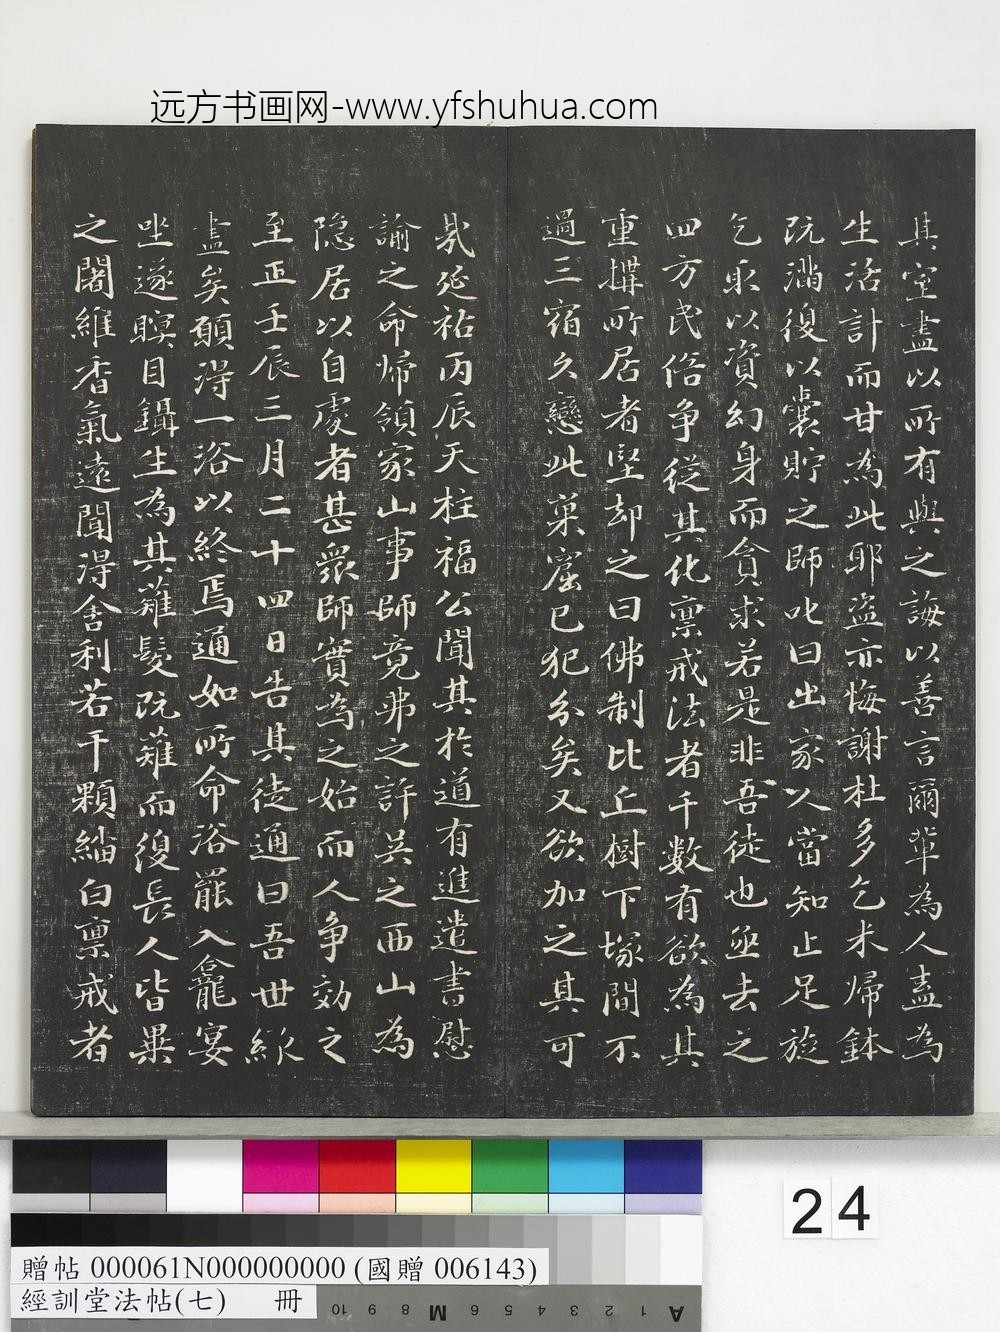 远方书画网-www.yfshuhua.com
其室盡以所有與之誨以善言爾輩為人盍為
生活計而甘為此耶盗亦悔謝杜多乞米歸鉢
既滿復以囊貯之師叱曰出家人當知止足旋
乞取以資幻身而貪求若是非吾徒也亟去之
四方民俗争從其化禀戒法者千數有欲為其
重搆所居者堅却之曰佛制比丘樹下塚間不
過三宿久戀此巢窟已犯分矣又欲加之其可
哉延祐丙辰天柱福公聞其於道有進遣書慰
諭之命歸領家山事師竟弗之許吳之西山為
隐居以自處者甚眾師實為之始而人争効之
至正壬辰三月二十四日告其徒通曰吾世緣
盡矣願得一浴以終焉通如所命浴罷入龕宴
坐遂瞑目鑷生為其薙髮既薙而復長人皆畢
之闍維香氣遠聞得舍利若干顆緇白禀戒者
24
贈帖 000061N000000000 (國贈 006143)
經訓堂法帖(七) 冊
10 9 8 M 6 5 4 3 2 1 A